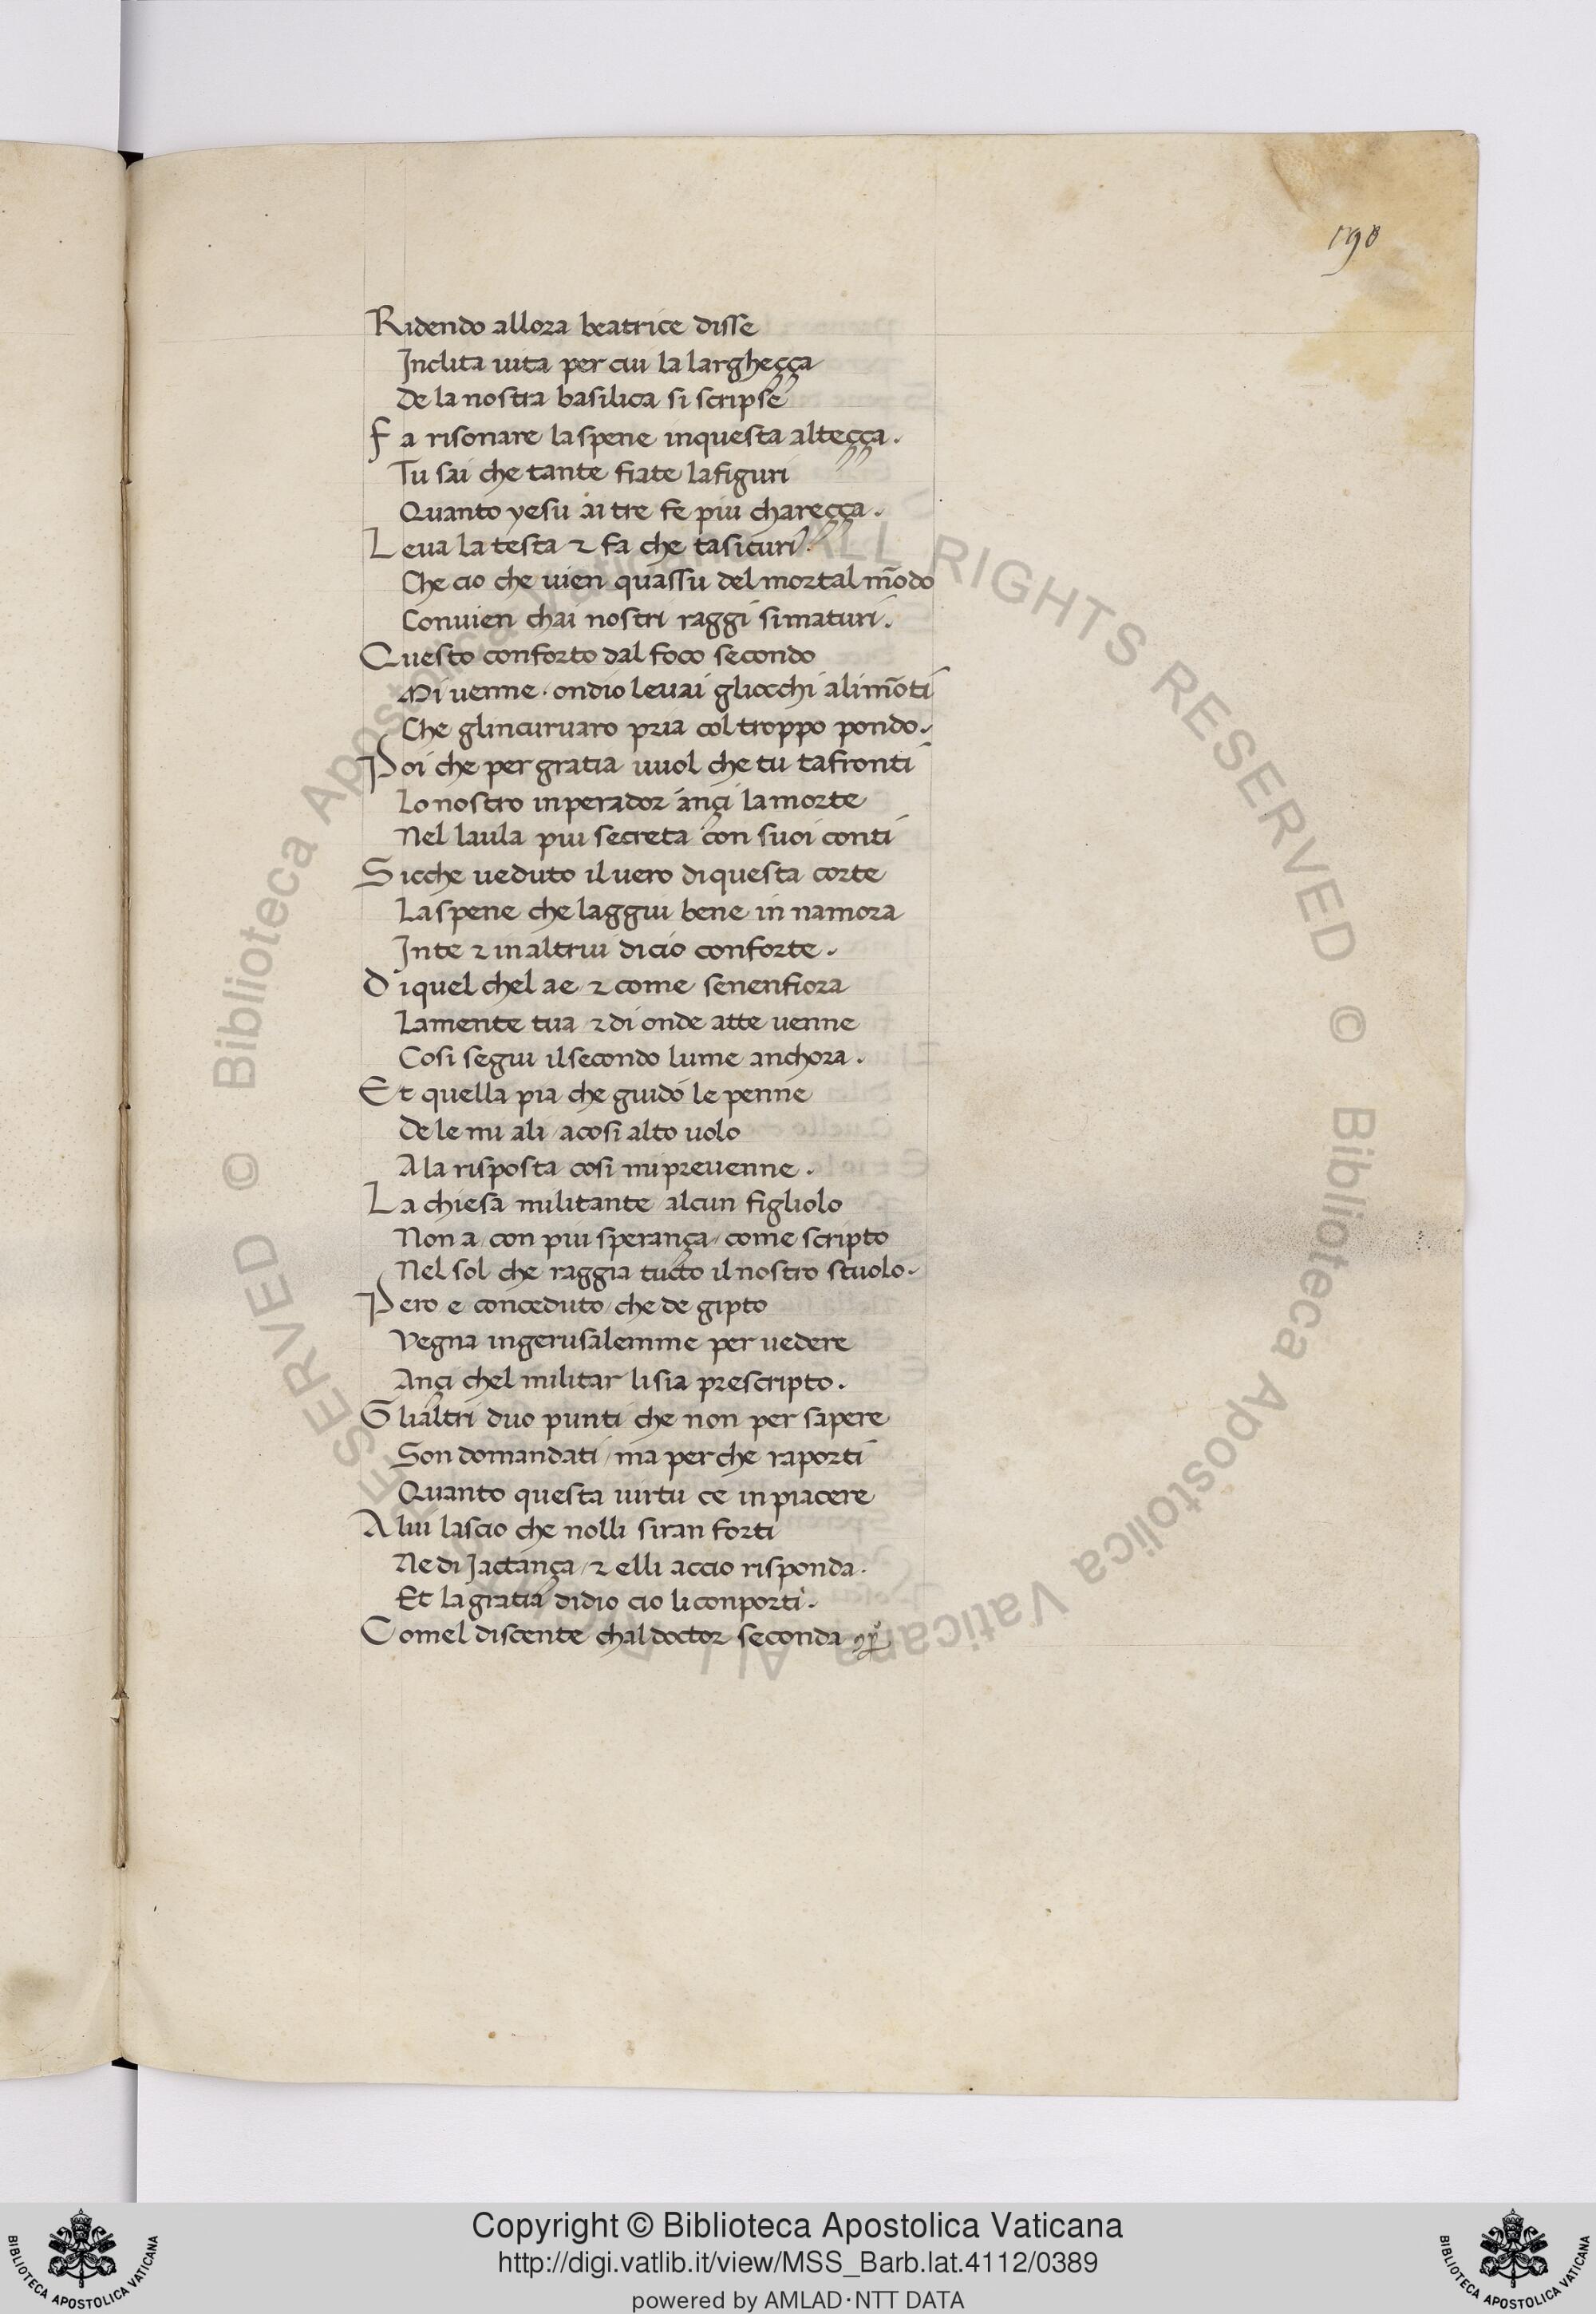 190
Ridendo allora beatrice disse
Inclita uita per cui la larghecça
De la nostra basilica si scripse
Fa risonare la spene inquesta altecça.
Tu sai che tante fiate lafiguri
Quanto yesu ai tre fe piu charecça.
Leua la testa ⁊ fa che tasicuri.
Che cio che uien quassu del mortal mōdo
Conuien chai nostri raggi simaturi.
Questo conforto dal foco secondo
Mi uenne / ondio leuai gliocchi alimōti
Che glincuruaro pria col troppo pondo.
Poi che per gratia uuol che tu tafronti
Lo nostro inperador ançi lamorte
Nel laula piu secreta con suoi conti
Sicche ueduto il uero diquesta corte
La spene che laggiu bene in namora
Inte ⁊ in altrui dicio conforte.
Diquel chel ae ⁊ come senenfiora
Lamente tua ⁊ di onde atte uenne
Cosi segui ilsecondo lume anchora.
Et quella pia che guido le penne
De le mi ali / acosi alto uolo
Ala risposta cosi mipreuenne.
La chiesa militante alcun figliolo
Non a / con piu sperança / come scripto
Nel sol che raggia tucto il nostro stuolo.
Pero e conceduto / che de gipto
Vegna ingerusalemme per uedere
Ançi chel militar lisia prescripto.
Glialtri duo punti che non per sapere
Son domandati / ma perche raporti
Quanto questa uirtu ce in piacere
Alui lascio che nolli siran forti
Ne di Jactança / ⁊ elli accio risponda.
Et la gratia didio cio li conporti.
Comel discente chal doctor seconda
© Biblioteca Apostolica Vaticana ALL RIGHTS RESERVED © Biblioteca Apostolica Vaticana ALL RIGHTS RESERVED
Copyright © Biblioteca Apostolica Vaticana
http://digi.vatlib.it/view/MSS_Barb.lat.4112/0389
powered by AMLAD·NTT DATA
BIBLIOTECA APOSTOLICA VATICANA
BIBLIOTECA APOSTOLICA VATICANA